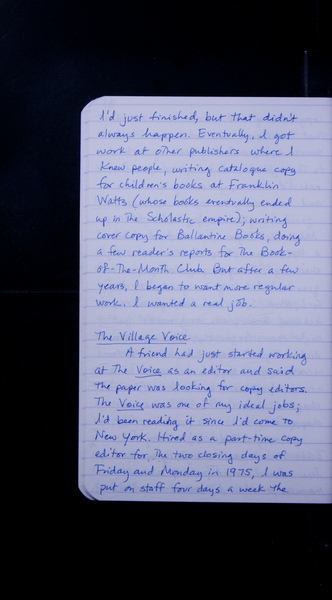 I'd just finished, but that didn't
always happen. Eventually, I got
work at other publishers where I
knew people, writing catalogue copy
for children's books at Franklin
Watts (whose books eventually ended
up in The Scholastic empire); writing
cover copy for Ballantine Books, doing
a few reader's reports for The Book-
of-The-Month Club. But after a few
years, I began to want more regular
work. I wanted a real job.
The Village Voice
A friend had just started working
at The Voice as an editor and said
the paper was looking for copy editors.
The Voice was one of my ideal jobs;
I'd been reading it since I'd come to
New York. Hired as a part-time copy
editor for the two closing days of
Friday and Monday in 1975, I was
put on staff four days a week the